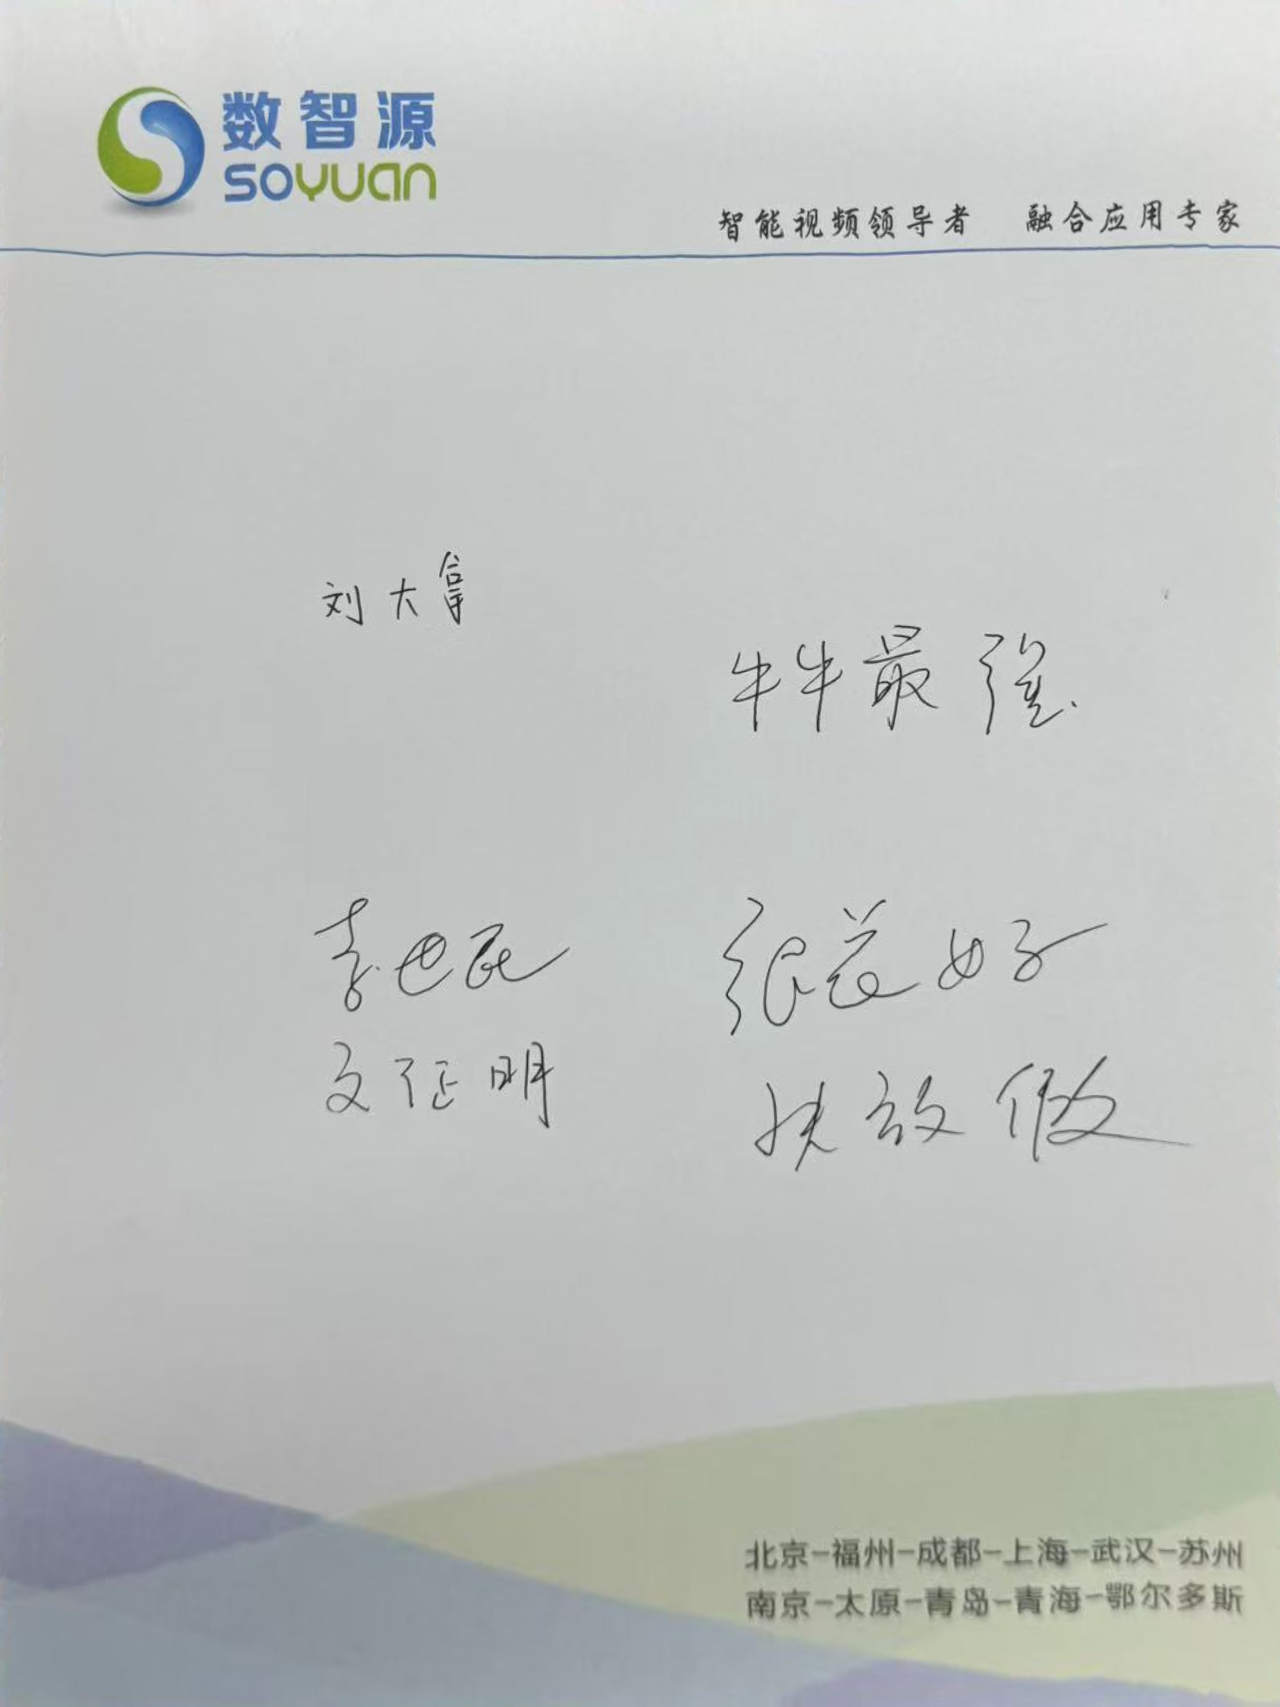 数智源
SOYUAN
智能视频领导者 融合应用专家
刘大拿
牛牛最强
李世民
张总好
文征明
放假
北京-福州-成都-上海-武汉-苏州
南京-太原-青岛-青海-鄂尔多斯